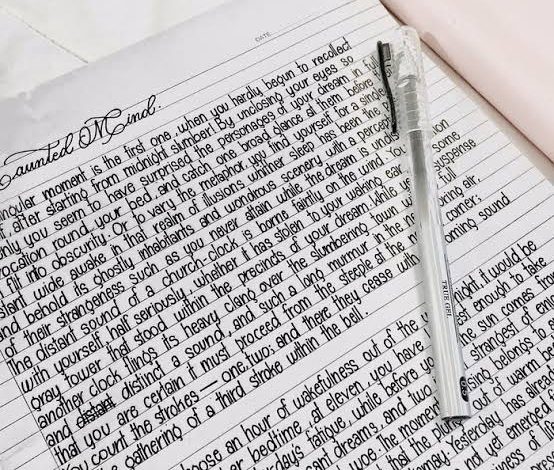 DATE
aunted Mind.
ngular moment is the first one, when you hardly begun to recollect
after starting from midnight slumber! By unclosing your eyes so
ly you seem to have surprised the personages of your dream in full
vocation round your bed, and catch one broad glance at them before
flit into obscurity. Or, to vary the metaphor, you find yourself for a single
stant wide awake in that realm of illusions whither sleep has been the
and behold its ghostly inhabitants and wondrous scenery with a percep
of their strangeness such as you never attain while the dream is
tha distant sound of a church-clock is borne faintly on the wind.
with yourself, half seriously, whether it has stolen to your waking ear some
gray tower that stood within the precincts of your dream. While
another clock flings its heavy clang over the slumbering town
and distant distinct a sound, and such a long murmur in the air,
that you are certain it must proceed from the steeple at the corner;
you count the strokes—one, two; and there they cease with oming sound
the gathering of a third stroke within the bell.
hoose an hour of wakefulness out of the night, it would be
r bedtime, at eleven, you have enough to take
ays fatigue, while before you the sun comes
ant dreams, and two strangest of
ipe the moment belongs to
that the out of warm
Yesterday has alrea
yet emerged
TRUE GEL